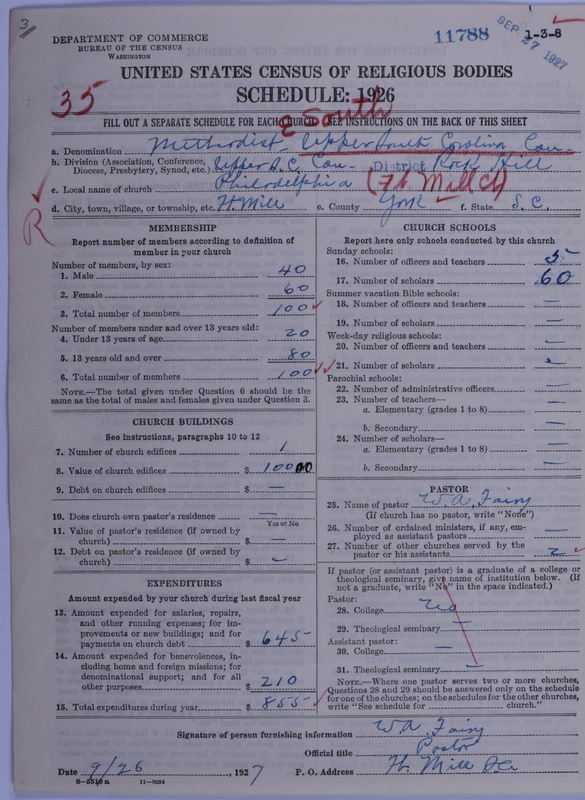 3
DEPARTMENT OF COMMERCE
BUREAU OF THE CENSUS
WASHINGTON
11788
SEP 27 1927
1-3-8
UNITED STATES CENSUS OF RELIGIOUS BODIES
SCHEDULE: 1926
35
FILL OUT A SEPARATE SCHEDULE FOR EACH CHURCH SEE INSTRUCTIONS ON THE BACK OF THIS SHEET
E South
a. Denomination Methodist, Upper South Carolina Con
b. Division (Association, Conference, Diocese, Presbytery, Synod, etc.) Upper S.C. Con District Rock Hill
c. Local name of church Philadelphia (Ft Mill Ct)
d. City, town, village, or township, etc. Ft. Mill e. County York f. State S.C.
R
MEMBERSHIP
Report number of members according to definition of member in your church
Number of members, by sex:
1. Male 40
2. Female 60
3. Total number of members 100
Number of members under and over 13 years old:
4. Under 13 years of age 20
5. 13 years old and over 80
6. Total number of members 100
NOTE.—The total given under Question 6 should be the same as the total of males and females given under Question 3.
CHURCH BUILDINGS
See instructions, paragraphs 10 to 12
7. Number of church edifices 1
8. Value of church edifices $ 10000
9. Debt on church edifices $ —
10. Does church own pastor's residence —
Yes or No
11. Value of pastor's residence (if owned by church) $ —
12. Debt on pastor's residence (if owned by church) $ —
EXPENDITURES
Amount expended by your church during last fiscal year
13. Amount expended for salaries, repairs, and other running expenses; for improvements or new buildings; and for payments on church debt $ 645
14. Amount expended for benevolences, including home and foreign missions; for denominational support; and for all other purposes $ 210
15. Total expenditures during year $ 855
CHURCH SCHOOLS
Report here only schools conducted by this church
Sunday schools:
16. Number of officers and teachers 5
17. Number of scholars 60
Summer vacation Bible schools:
18. Number of officers and teachers —
19. Number of scholars —
Week-day religious schools:
20. Number of officers and teachers —
21. Number of scholars
Parochial schools:
22. Number of administrative officers —
23. Number of teachers—
a. Elementary (grades 1 to 8) —
b. Secondary —
24. Number of scholars—
a. Elementary (grades 1 to 8) —
b. Secondary —
PASTOR
25. Name of pastor W. A. Fairy
(If church has no pastor, write "None")
26. Number of ordained ministers, if any, employed as assistant pastors —
27. Number of other churches served by the pastor or his assistants 2
If pastor (or assistant pastor) is a graduate of a college or theological seminary, give name of institution below. (If not a graduate, write "No" in the space indicated.)
Pastor:
28. College No
29. Theological seminary —
Assistant pastor:
30. College —
31. Theological seminary —
NOTE.—Where one pastor serves two or more churches, Questions 28 and 29 should be answered only on the schedule for one of the churches; on the schedules for the other churches, write "See schedule for church."
Signature of person furnishing information W A. Fairy
Official title Pastor
Date 9/26, 1927 P. O. Address Ft. Mill S.C.
8—5518a 11—9054